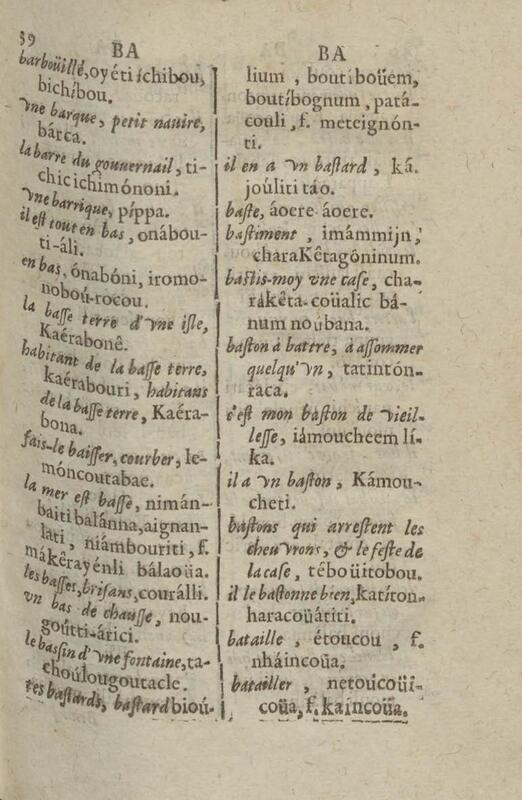 39
BA
barboüillé, oyéti íchibou,
bichíbou.
vne barque, petit nauire,
bárca.
la barre du gouuernail, ti-
chic ichimónoni.
vne barrique, píppa.
il est tout en bas, onábou-
ti-áli.
en bas, ónabóni, iromo-
noboú-rocou.
la basse terre d'vne isle,
Kaérabonê.
habitant de la basse terre,
kaérabouri, habitans
de la basse terre, Kaéra-
bona.
fais-le baisser, courber, le-
móncoutabae.
la mer est basse, nimán-
baiti balánna, aignan-
lati, niámbouriti, f.
mákêrayénli bálaoüa.
les basses, brisans, courálli.
vn bas de chausse, nou-
goútti-árici.
le bassin d'vne fontaine, ta-
choúlougoutacle.
tes bastards, bastard bioú-
BA
lium, boutíboüem,
boutíbognum, patá-
couli, f. meteignón-
ti.
il en a vn bastard, ká-
joúliti táo.
baste, áoere áoere.
bastiment, imámmijn,
charaKêtagóninum.
bastis-moy vne case, cha-
rákêta-coüalic bá-
num noúbana.
baston à battre, à assommer
quelqu'vn, tatintón-
raca.
c'est mon baston de vieil-
lesse, iámoucheem lí-
ka.
il a vn baston, Kámou-
cheti.
bastons qui arrestent les
cheuvrons, & le feste de
la case, téboüitobou.
il le bastonne bien, katíton-
haracoüátiti.
bataille, étoucou, f.
nháincoüa,
batailler, netoucoüí-
coüa, f. kaíncoüa.